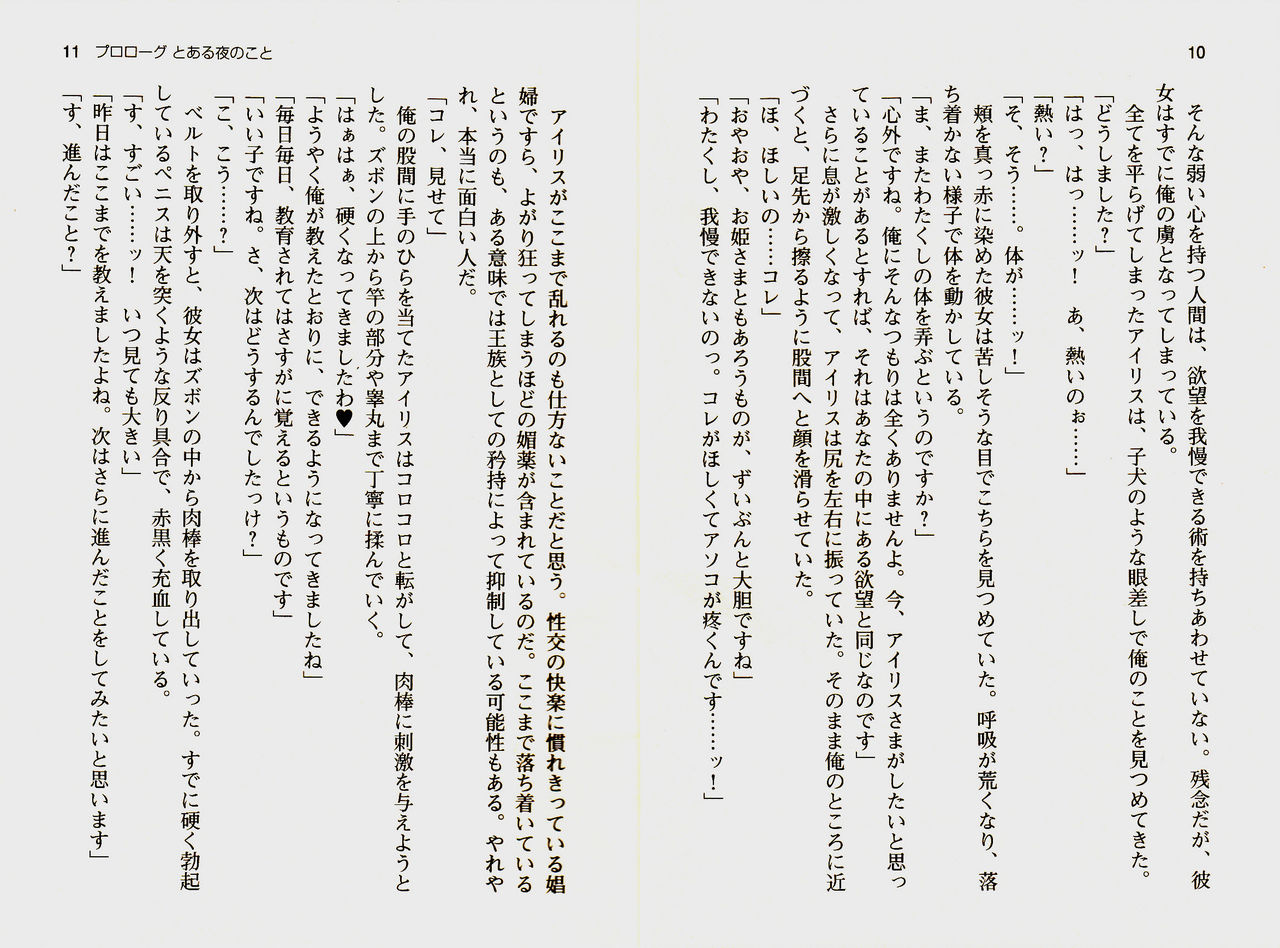 10
そんな弱い心を持つ人間は、欲望を我慢できる術を持ちあわせていない。残念だが、彼
女はすでに俺の虜となってしまっている。
全てを平らげてしまったアイリスは、子犬のような眼差しで俺のことを見つめてきた。
「どうしました？」
「はっ、はっ……ッ！　あ、熱いのぉ……」
「熱い？」
「そ、そう……。体が……ッ！」
頬を真っ赤に染めた彼女は苦しそうな目でこちらを見つめていた。呼吸が荒くなり、落
ち着かない様子で体を動かしている。
「ま、またわたくしの体を弄ぶというのですか？」
「心外ですね。俺にそんなつもりは全くありませんよ。今、アイリスさまがしたいと思っ
ていることがあるとすれば、それはあなたの中にある欲望と同じなのです」
さらに息が激しくなって、アイリスは尻を左右に振っていた。そのまま俺のところに近
づくと、足先から擦るように股間へと顔を滑らせていた。
「ほ、ほしいの……コレ」
「おやおや、お姫さまともあろうものが、ずいぶんと大胆ですね」
「わたくし、我慢できないのっ。コレがほしくてアソコが疼くんです……ッ！」
11　プロローグ とある夜のこと
アイリスがここまで乱れるのも仕方ないことだと思う。性交の快楽に慣れきっている娼
婦ですら、よがり狂ってしまうほどの媚薬が含まれているのだ。ここまで落ち着いている
というのも、ある意味では王族としての矜持によって抑制している可能性もある。やれや
れ、本当に面白い人だ。
「コレ、見せて」
俺の股間に手のひらを当てたアイリスはコロコロと転がして、肉棒に刺激を与えようと
した。ズボンの上から竿の部分や睾丸まで丁寧に揉んでいく。
「はぁはぁ、硬くなってきましたわ♥」
「ようやく俺が教えたとおりに、できるようになってきましたね」
「毎日毎日、教育されてはさすがに覚えるというものです」
「いい子ですね。さ、次はどうするんでしたっけ？」
「こ、こう……？」
ベルトを取り外すと、彼女はズボンの中から肉棒を取り出していった。すでに硬く勃起
しているペニスは天を突くような反り具合で、赤黒く充血している。
「す、すごい……ッ！　いつ見ても大きい」
「昨日はここまでを教えましたよね。次はさらに進んだことをしてみたいと思います」
「す、進んだこと？」